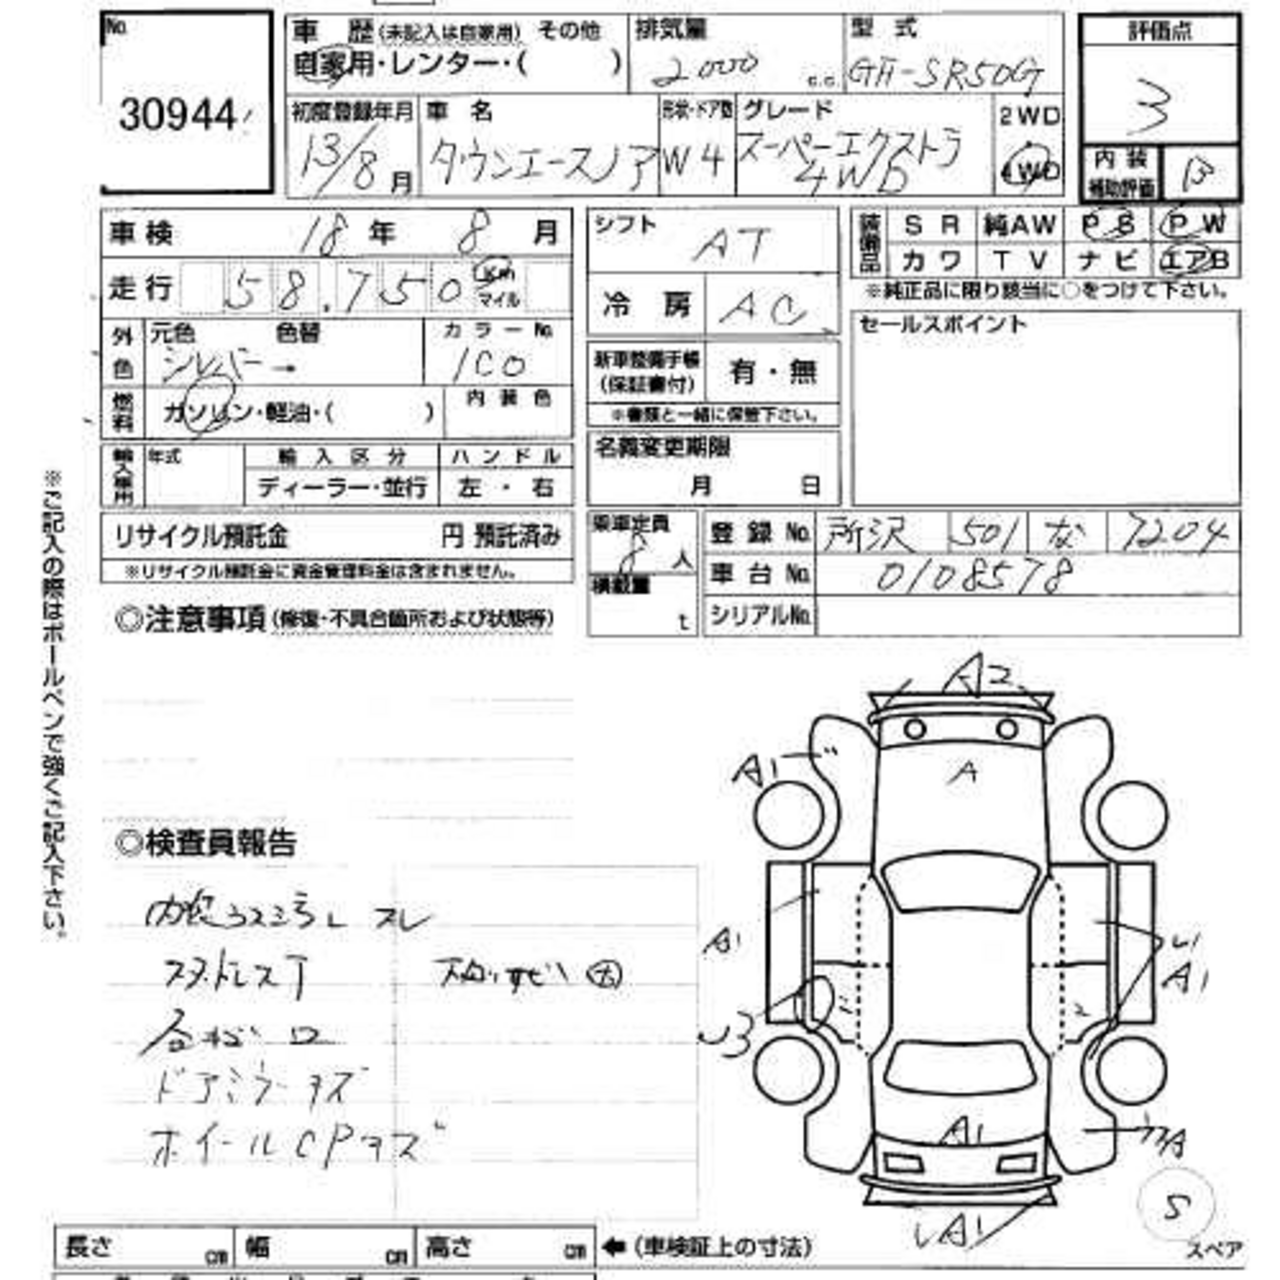 No.
30944
車歴(未記入は自家用) その他
自家用・レンター・( )
排気量
2000 c.c.
型式
GH-SR50G
評価点
3
内装
補助評価
B
初度登録年月
13/8月
車名
タウンエースノア
形状・ドア数
W4
グレード
スーパーエクストラ
4WD
2WD
4WD
車検 18年 8月
走行 58.750 Km
マイル
シフト AT
冷房 AC
装備品
SR 純AW PS PW
カワ TV ナビ エアB
※純正品に限り該当に○をつけて下さい。
外色
元色 色替
シルバー→
カラーNo.
1C0
燃料
ガソリン・軽油・( )
内装色
新車整備手帳
(保証書付)
有・無
※書類と一緒に保管下さい。
セールスポイント
輸入車用
年式
輸入区分
ディーラー・並行
ハンドル
左・右
名義変更期限
月 日
リサイクル預託金 円 預託済み
※リサイクル預託金に資金管理料金は含まれません。
乗車定員
8人
積載量
t
登録No. 所沢 501 な 7204
車台No. 0108578
シリアルNo.
※ご記入の際はボールペンで強くご記入下さい。
◎注意事項(修復・不具合箇所および状態等)
◎検査員報告
スレ
ドアミラーキズ
ホイールCPキズ
A2
A1
A
A1
A1
A1
A1
S
スペア
長さ cm 幅 cm 高さ cm ←(車検証上の寸法)